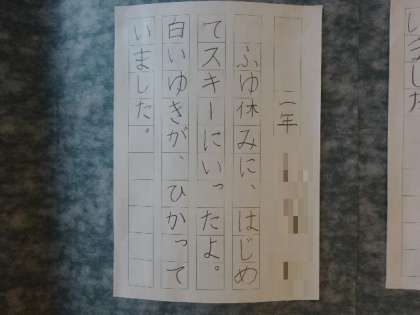 二年
ふゆ休みに、はじめ
てスキーにいったよ。
白いゆきが、ひかって
いました。